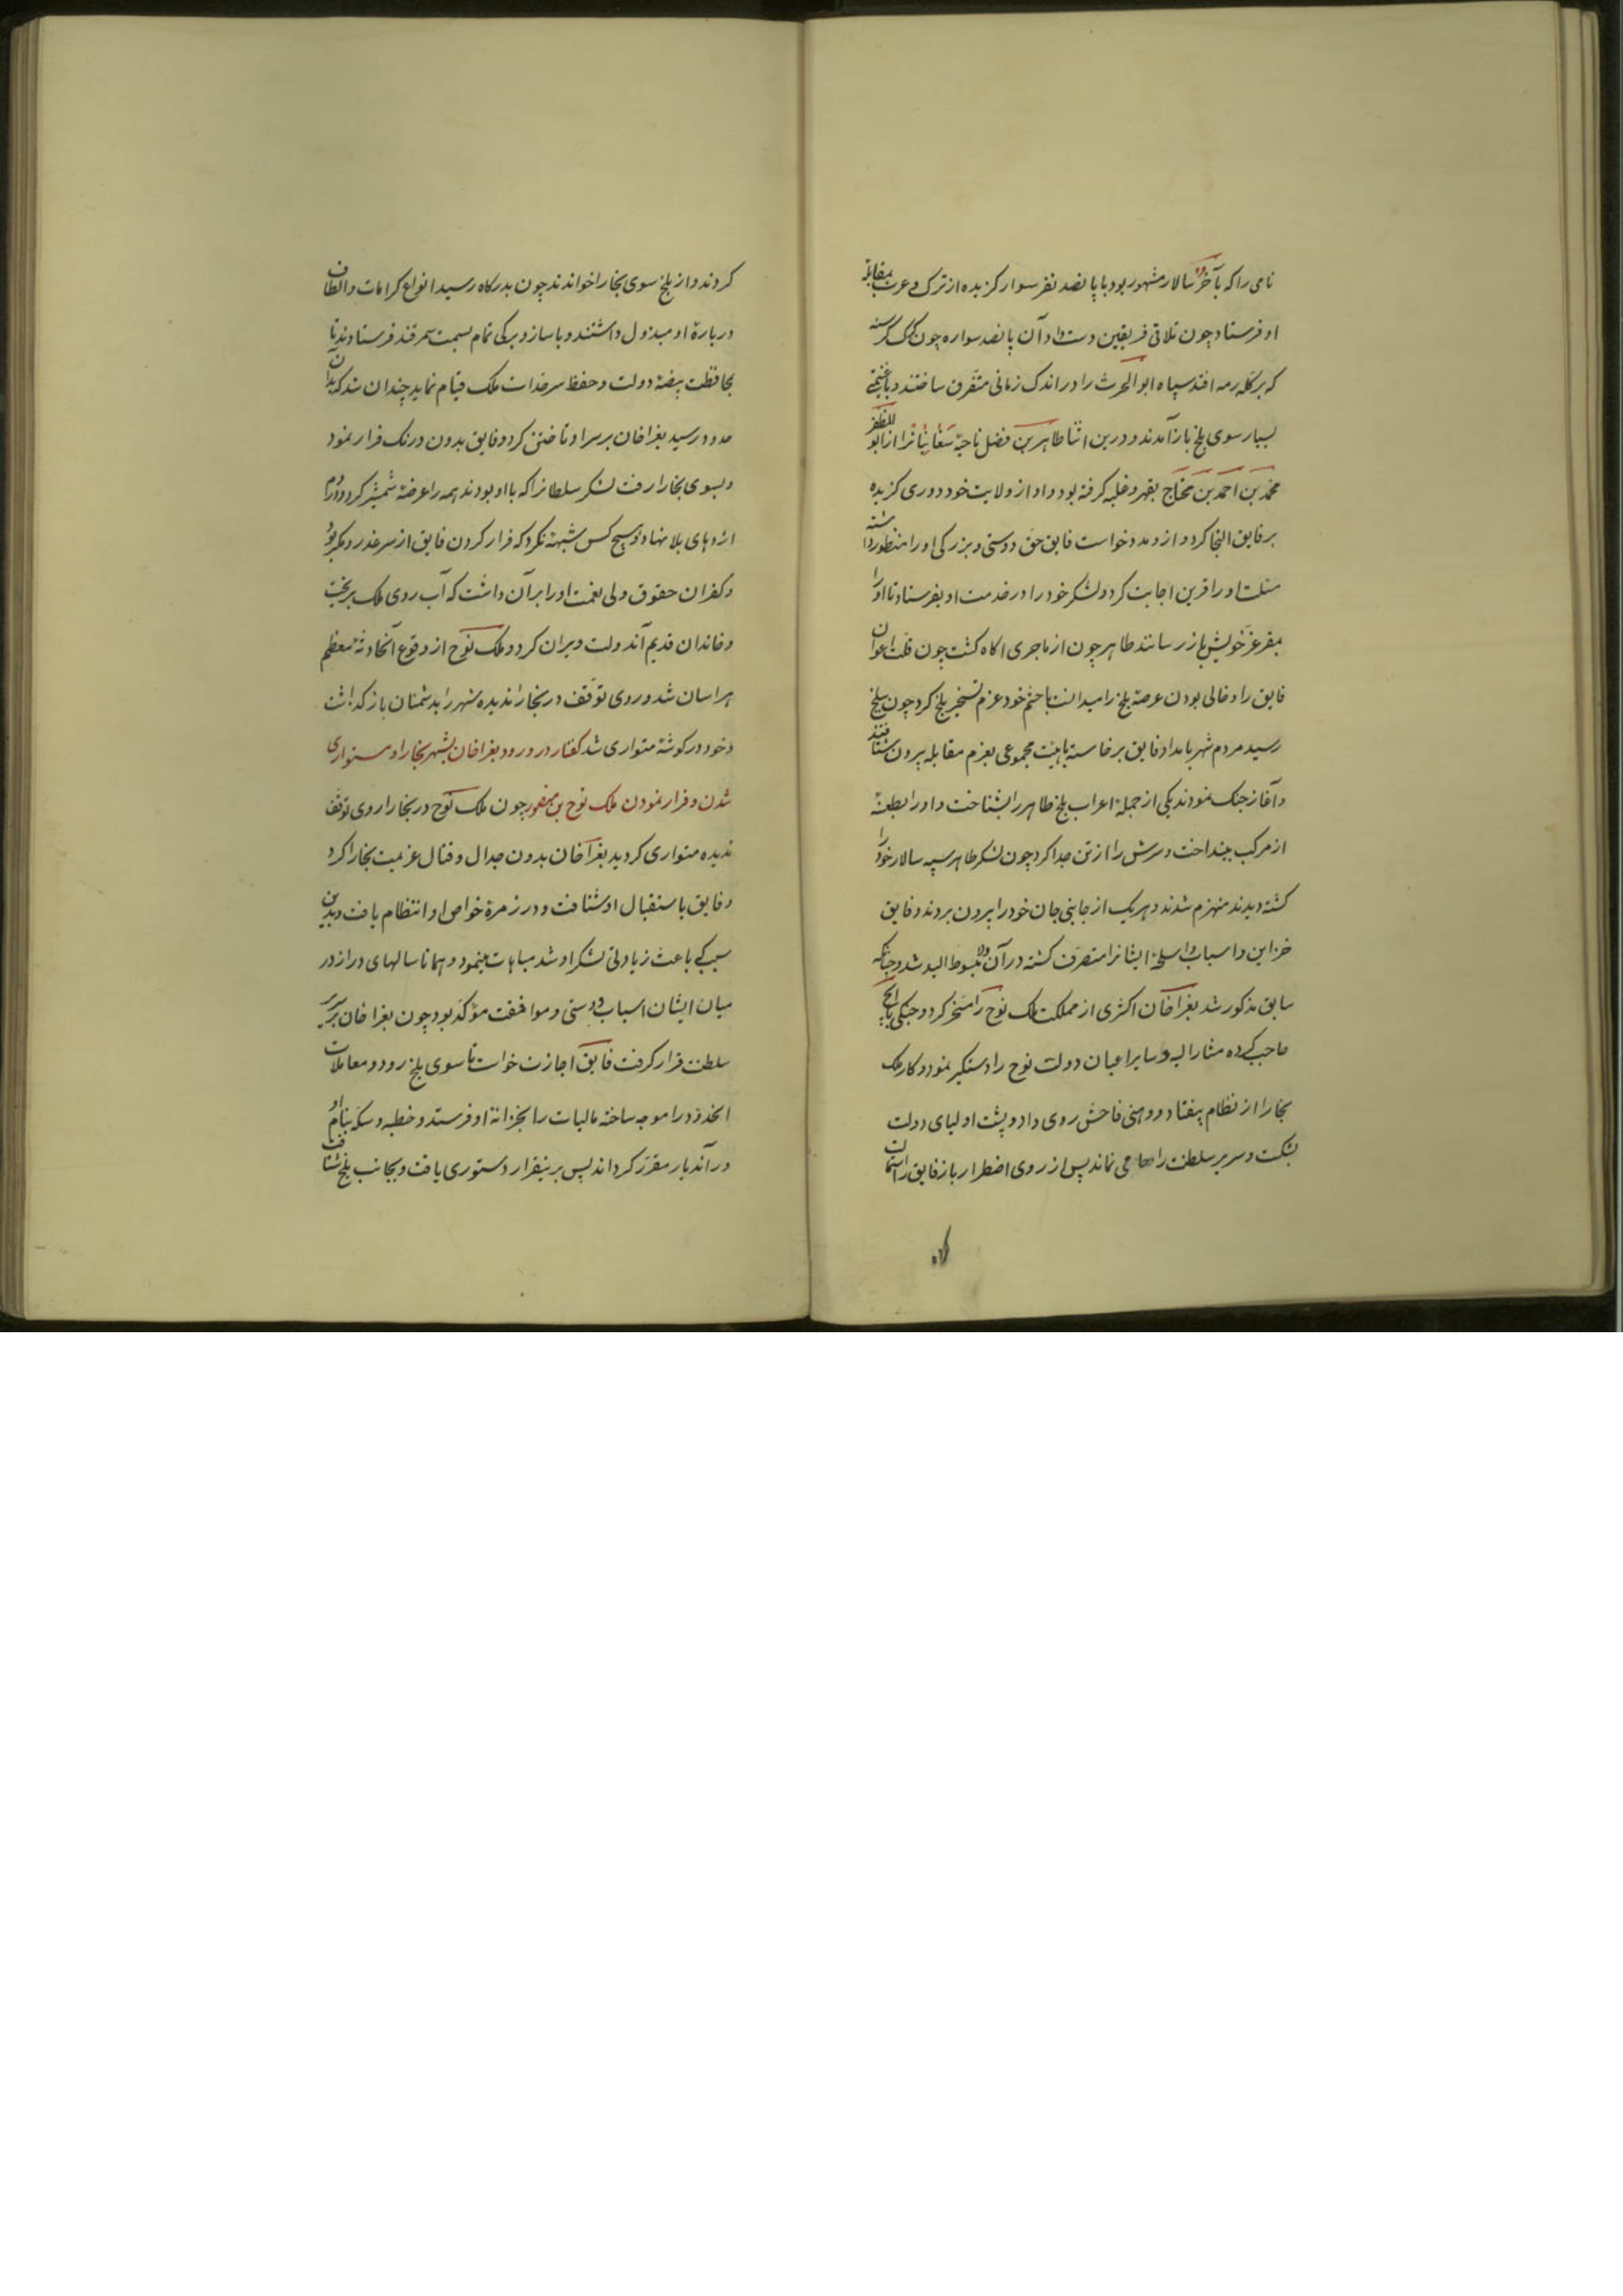 نامی را که بآخر سالار مشهور بود با پانصد نفر سوار کزیده از ترک و عرب بمقابله
او فرستاد چون تلاقی فریقین دست داد آن پانصد سواره چون کرک کرسنه
که بر کله رمه افتد سپاه ابوالحرث را در اندک زمانی متفرق ساختند و با غنیمتی
بسیار سوی بلخ باز آمدند و درین اثنا طاهر بن فضل ناحیهٔ صغانیانرا از ابو المظفر
محمد بن احمد بن محتاج بقهر و غلبه کرفته بود و او از ولایت خود دوری کزیده
بر فایق التجا کرد و از و مدد خواست فایق حق دوستی و بزرکی او را منظور داشته
مسئلت او را قرین اجابت کرد و لشکر خود را در خدمت او بفرستاد تا او را
بمقر عز خویش باز رسانند طاهر چون از ماجری اکاه کشت چون قلت اعوان
فایق را و خالی بودن عرصهٔ بلخ را میدانست با حشم خود عزم تسخیر بلخ کرد چون ببلخ
رسید مردم شهر بامداد فایق برخاسته باهیئت مجموعی بعزم مقابله بیرون شتافتند
و آغاز جنک نمودند یکی از جملهٔ اعراب بلخ طاهر را بشناخت و او را بطعنهٔ
از مرکب بینداخت و سرش را از تن جدا کرد چون لشکر طاهر سپه سالار خود را
کشته دیدند منهزم شدند و هریک از جانبی جان خود را بیرون بردند و فایق
خزاین و اسباب و اسلحهٔ ایشانرا متصرف کشته در آن ولا مبسوط الید شد و چنانکه
سابق مذکور شد بغراخان اکثری از مملکت ملک نوح را مسخر کرد و جنکی با ایچ
حاجب کرده مشارالیه و سایر اعیان دولت نوح را دستکیر نمود و کار ملک
بخارا از نظام بیفتاد و وهنی فاحش روی داد و پشت اولیای دولت
بشکست و سریر سلطنت را حامی نماند پس از روی اضطرار باز فایق را استمالت
کردند و از بلخ سوی بخارا خواندند چون بدرکاه رسید انواع کرامات و الطاف
دربارهٔ او مبذول داشتند و با ساز و برکی تمام بسمت سمرقند فرستادند تا
بمحافظت بیضهٔ دولت و حفظ سرحدات ملک قیام نماید چندان شد که بدان
حدود رسید بغراخان بر سر او تاختن کرد و فایق بدون درنک فرار نمود
و بسوی بخارا رفت لشکر سلطانرا که با او بودند همه را عرضهٔ شمشیر کرد و در دم
اژدهای بلا نهاد و هیچ کس شبهه نکرد که فرار کردن فایق از سر غدر و مکر بود
و کفران حقوق ولی نعمت او را بر آن داشت که آب روی ملک بریخت
و خاندان قدیم آندولت ویران کرد و ملک نوح از وقوع آنحادثهٔ معظم
هراسان شد و روی توقف در بخارا ندیده شهر را بدشمنان باز کذاشت
و خود در کوشهٔ متواری شد کفتار در ورود بغراخان بشهر بخارا و متواری
شدن و فرار نمودن ملک نوح بن منصور چون ملک نوح در بخارا روی توقف
ندیده متواری کردید بغراخان بدون جدال و قتال عزیمت بخارا کرد
و فایق باستقبال او شتافت و در زمرهٔ خواص او انتظام یافت و بدین
سبب که باعث زیادتی لشکر او شد مباهات مینمود و همانا سالهای دراز در
میان ایشان اسباب دوستی و موافقت مؤکد بود چون بغراخان بر سریر
سلطنت قرار کرفت فایق اجازت خواست تا سوی بلخ رود و معاملات
انحدود را موجه ساخته مالیات را بخزانهٔ او فرستد و خطبه و سکه بنام او
در آندیار مقرر کرداند پس برینقرار دستوری یافت و بجانب بلخ شتافت